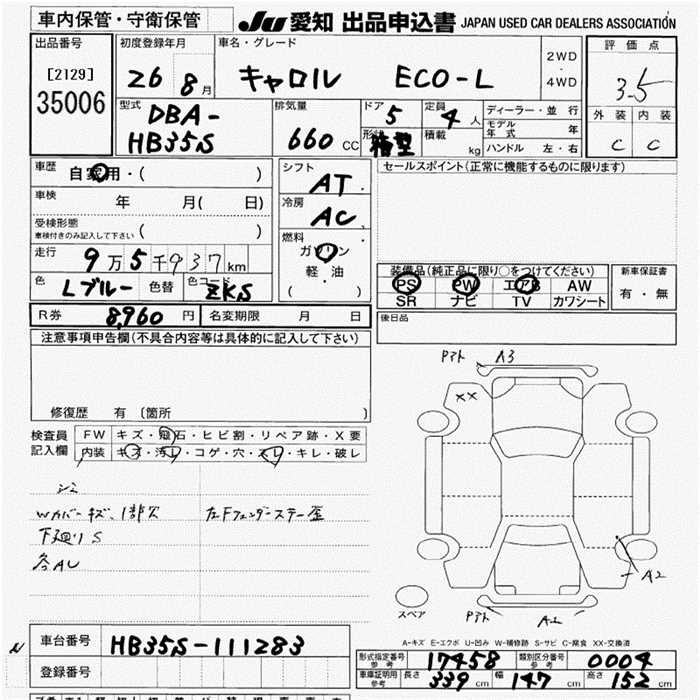 車内保管・守衛保管
JU 愛知 出品申込書 JAPAN USED CAR DEALERS ASSOCIATION
出品番号
[2129]
35006
初度登録年月
26 8月
車名・グレード
キャロル ECO-L
2WD
・
4WD
評価点
3.5
外装 内装
C C
型式
DBA-
HB35S
排気量
660 CC
ドア
5
定員
4 人
形状
箱型
積載
kg
ディーラー・並行
モデル年式 年
ハンドル 左・右
車歴
自家用・( )
車検
年 月( 日)
受検形態
車検付きのみ記入して下さい ( )
走行
9万5千937km
色
Lブルー
色替
色コード
ZKS
シフト
AT
冷房
AC
燃料
ガソリン
軽・油
( )
セールスポイント(正常に機能するものに限ります)
装備品(純正品に限り○をつけてください)
PS PW エアB AW
SR ナビ TV カワシート
新車保証書
有・無
R券 8,960 円
名変期限 月 日
後日品
注意事項申告欄(不具合内容等は具体的に記入して下さい)
修復歴 有 〔箇所 〕
検査員
記入欄
FW キズ・飛石・ヒビ割・リペア跡・X要
内装 キズ・汚レ・コゲ・穴・スレ・キレ・破レ
Wカバーキズ、1部欠
下廻りS
各AU
左Fフェンダーステー歪
Pアト A3
XX
A2
スペア
Pアト A2
A-キズ E-エクボ U-凹み W-補修跡 S-サビ C-腐食 XX-交換済
車台番号
HB35S-111283
登録番号
形式指定番号
参考
17458
類別区分番号
参考
0004
車庫証明用
参考
長さ 339 cm 幅 147 cm 高さ 152 cm